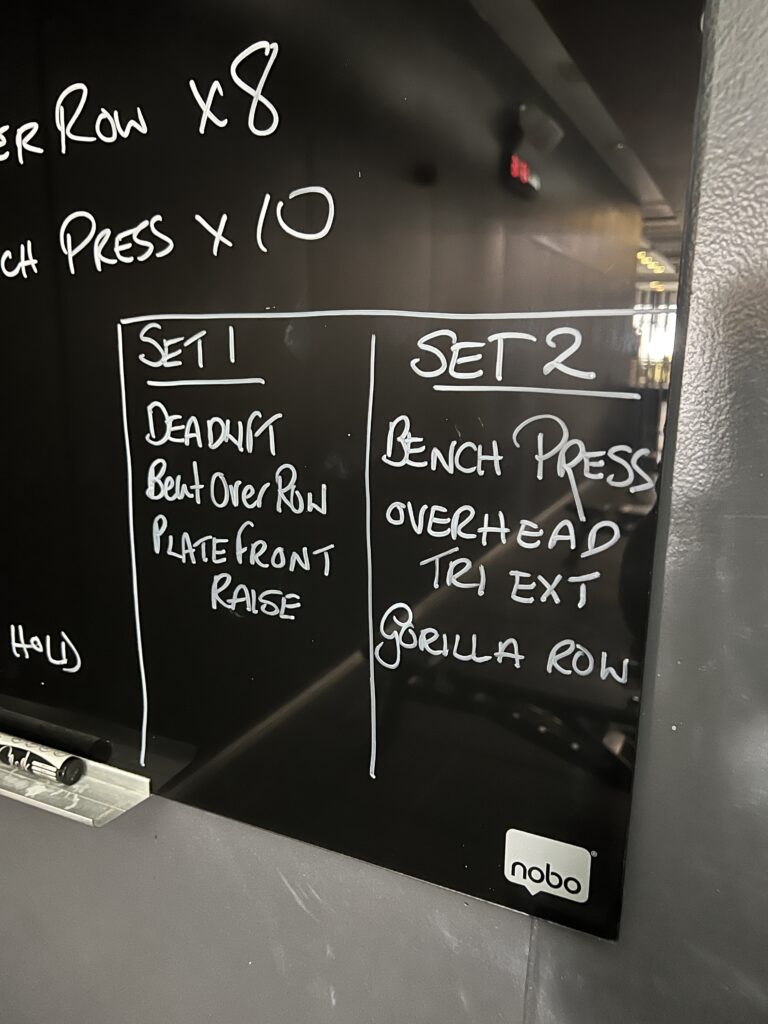 ER ROW x8
CH PRESS x 10
SET 1
DEADLIFT
Bent Over ROW
PLATE FRONT
RAISE
SET 2
BENCH PRESS
OVERHEAD
TRI EXT
GORILLA ROW
HOLD
nobo